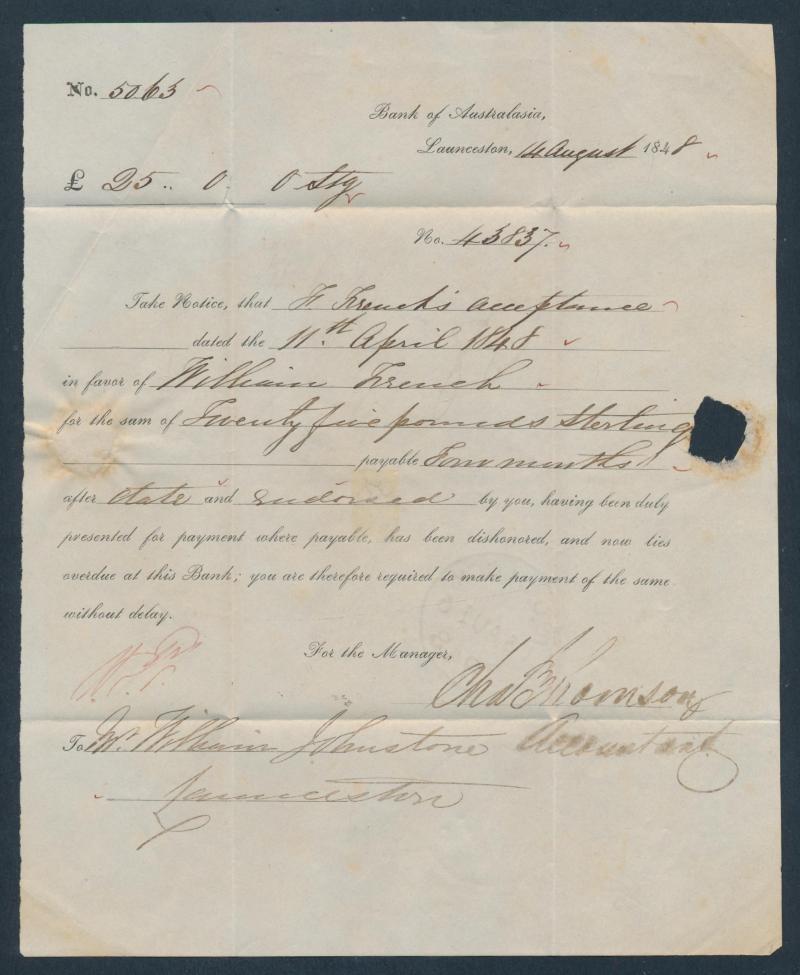 No. 5063
Bank of Australasia,
Launceston, 14 August 1848
£ 25 .. 0 . 0 Stg
No. 43837.
Take Notice, that F French's acceptance
dated the 11th. April 1848
in favor of William French
for the sum of Twenty five pounds Sterling
payable Four months
after date and endorsed by you, having been duly
presented for payment where payable, has been dishonored, and now lies
overdue at this Bank; you are therefore required to make payment of the same
without delay.
For the Manager,
Chas Thomson
To Mr. William Johnstone Accountant
Launceston